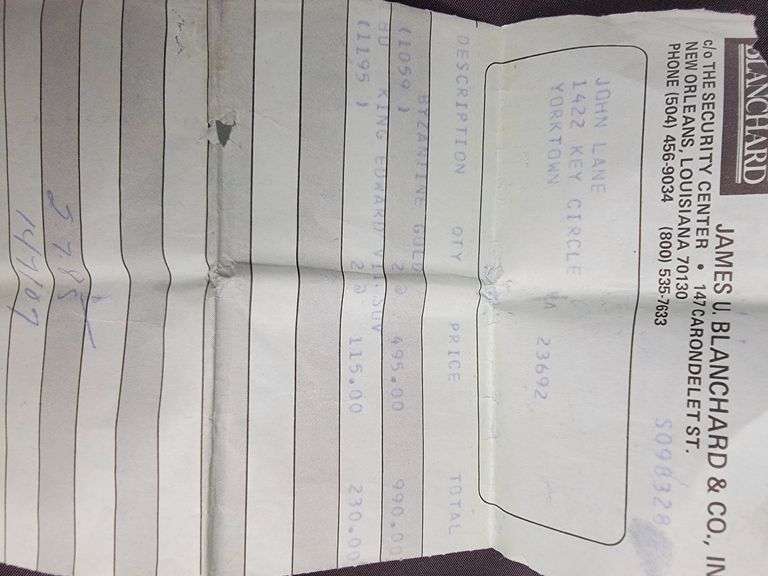 BLANCHARD
JAMES U. BLANCHARD & CO., IN
c/o THE SECURITY CENTER • 147 CARONDELET ST.
NEW ORLEANS, LOUISIANA 70130
PHONE (504) 456-9034 (800) 535-7633
S098328
JOHN LANE
1422 KEY CIRCLE
YORKTOWN VA 23692
DESCRIPTION QTY PRICE TOTAL
BYZANTINE GOLD
(1059 ) 2 @ 495.00 990.00
KING EDWARD VII SOV
(1195 ) 2 @ 115.00 230.00
5785